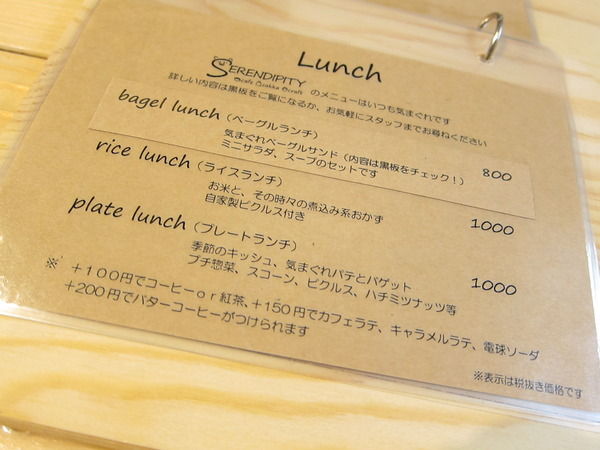 Lunch
SERENDIPITY のメニューはいつも気まぐれです
cafe zakka craft
詳しい内容は黒板をご覧になるか、お気軽にスタッフまでお尋ねください
bagel lunch（ベーグルランチ）
気まぐれベーグルサンド（内容は黒板をチェック！） 800
ミニサラダ、スープのセットです
rice lunch（ライスランチ）
お米と、その時々の煮込み系おかず 1000
自家製ピクルス付き
plate lunch（プレートランチ）
季節のキッシュ、気まぐれパテとバゲット 1000
プチ惣菜、スコーン、ピクルス、ハチミツナッツ等
※ ＋１００円でコーヒーｏｒ紅茶、＋150円でカフェラテ、キャラメルラテ、電球ソーダ
＋200円でバターコーヒーがつけられます
※表示は税抜き価格です